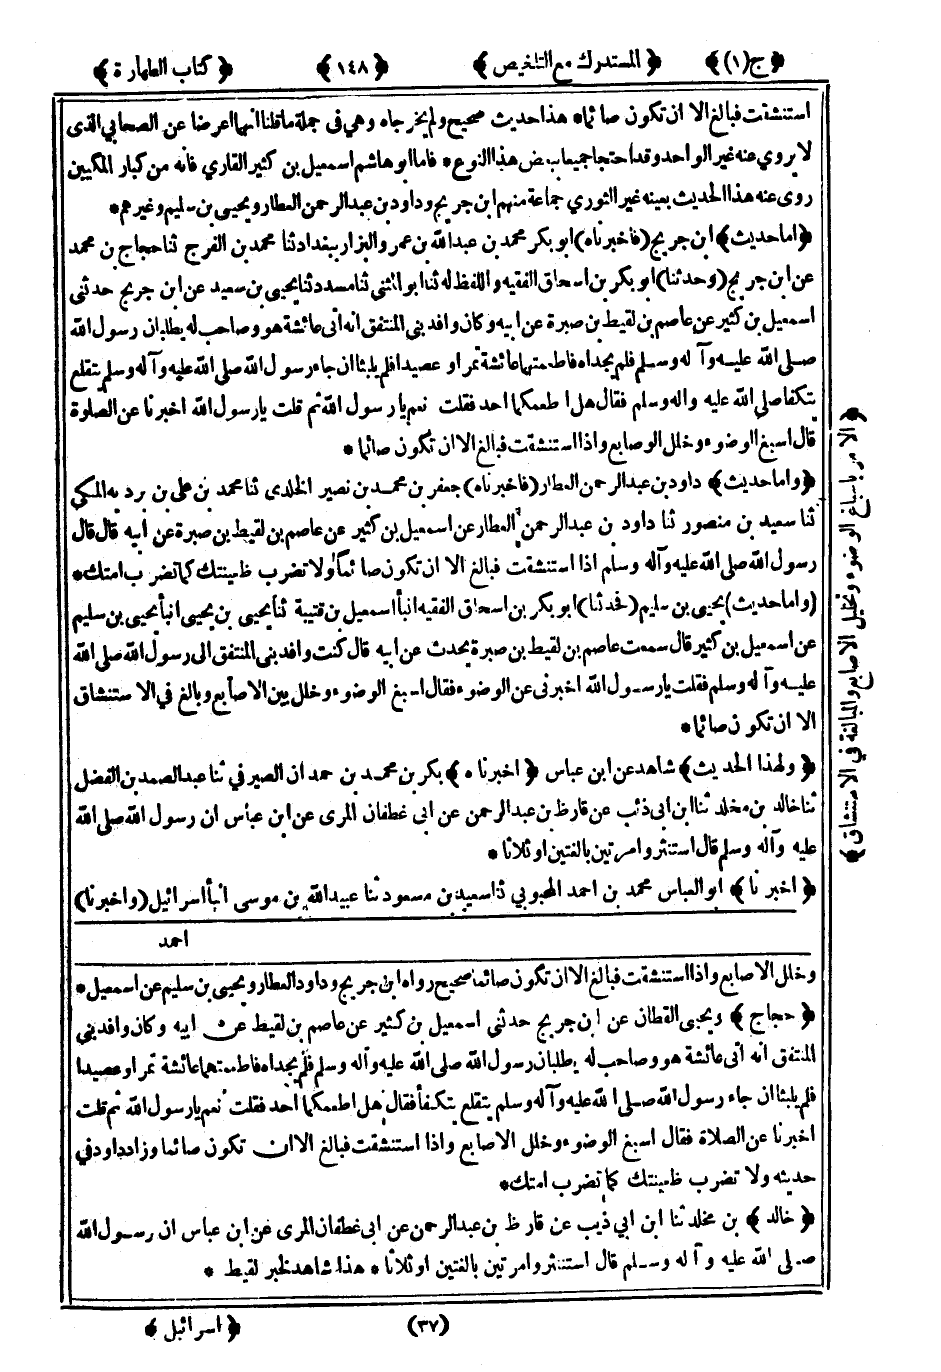 ﴿ ج (١) ﴾ ﴿ المستدرك مع التلخيص ﴾ ﴿ ١٤٨ ﴾ ﴿ كتاب الطهارة ﴾
استنشقت فبالغ الا ان تكون صائما * هذا حديث صحيح ولم يخرجاه وهي في جملة ما قلنا انهما اعرضا عن الصحابي الذي
لا يروي عنه غير الواحد وقد احتجا جميعا ببعض هذا النوع * فاما ابو هاشم اسمعيل بن كثير القاري فانه من كبار المكيين
روى عنه هذا الحديث بعينه غير الثوري جماعة منهم ابن جريج وداود بن عبدالرحمن العطار ويحيى بن سليم وغيرهم *
﴿ اما حديث ﴾ ابن جريج (فاخبرناه) ابو بكر محمد بن عبدالله بن عمرو البزار ببغداد ثنا محمد بن الفرج ثنا حجاج بن محمد
عن ابن جريج (وحدثنا) ابو بكر بن اسحاق الفقيه واللفظ له ثنا ابو المثني ثنا مسدد ثنا يحيى بن سعيد عن ابن جريج حدثني
اسمعيل بن كثير عن عاصم بن لقيط بن صبرة عن ابيه وكان وافد بني المنتفق انه اتى عائشة هو وصاحب له يطلبان رسول الله
صلى الله عليه وآله وسلم فلم يجداه فاطعمتهما عائشة تمرا وعصيدا فلم يلبثا ان جاء رسول الله صلى الله عليه وآله وسلم يتقلع
يتكفا صلى الله عليه واله وسلم فقال هل اطعمكما احد فقلت نعم يا رسول الله ثم قلت يارسول الله اخبرنا عن الصلوة
قال اسبغ الوضوء وخلل الاصابع واذا استنشقت فبالغ الا ان تكون صائما *
﴿ واما حديث ﴾ داود بن عبدالرحمن العطار (فاخبرناه) جعفر بن محمد بن نصير الخلدى ثنا محمد بن علي بن بريد به المكي
ثنا سعيد بن منصور ثنا داود بن عبدالرحمن العطار عن اسمعيل بن كثير عن عاصم بن لقيط بن صبرة عن ابيه قال قال
رسول الله صلى الله عليه وآله وسلم اذا استنشقت فبالغ الا ان تكون صائما ولا تضرب ظعينتك كما تضرب امتك *
(واما حديث) يحيى بن سليم (فحدثنا) ابو بكر بن اسحاق الفقيه انبأ اسمعيل بن قتيبة ثنا يحيى بن يحيى انبأ يحيى بن سليم
عن اسمعيل بن كثير قال سمعت عاصم بن لقيط بن صبرة يحدث عن ابيه قال كنت وافد بني المنتفق الى رسول الله صلى الله
عليه وآله وسلم فقلت يارسول الله اخبرنى عن الوضوء فقال اسبغ الوضوء وخلل بين الاصابع وبالغ في الاستنشاق
الا ان تكون صائما *
﴿ ولهذا الحديث ﴾ شاهد عن ابن عباس ﴿ اخبرناه ﴾ بكر بن محمد بن حمدان الصيرفي ثنا عبدالصمد بن الفضل
ثنا خالد بن مخلد ثنا ابن ابى ذئب عن قارظ بن عبدالرحمن عن ابى غطفان المرى عن ابن عباس ان رسول الله صلى الله
عليه وآله وسلم قال استنثروا مرتين بالغتين او ثلاثا *
﴿ اخبرنا ﴾ ابو العباس محمد بن احمد المحبوبي ثنا سعيد بن مسعود ثنا عبيدالله بن موسى انبأ اسرائيل (واخبرنا)
احمد
وخلل الاصابع واذا استنشقت فبالغ الا ان تكون صائما صحيح رواه ابن جريج وداود العطار ويحيى بن سليم عن اسمعيل *
﴿ حجاج ﴾ ويحيى القطان عن ابن جريج حدثني اسمعيل بن كثير عن عاصم بن لقيط عن ابيه وكان وافد بني
المنتفق انه اتى عائشة هو وصاحب له يطلبان رسول الله صلى الله عليه وآله وسلم فلم يجداه فاطعمتهما عائشة تمرا وعصيدا
فلم يلبثا ان جاء رسول الله صلى الله عليه وآله وسلم يتقلع يتكفأ فقال هل اطعمكما احد فقلت نعم يارسول الله ثم قلت
اخبرنا عن الصلاة فقال اسبغ الوضوء وخلل الاصابع واذا استنشقت فبالغ الا ان تكون صائما وزاد داود في
حديثه ولا تضرب ظعينتك كما تضرب امتك *
﴿ خالد ﴾ بن مخلد ثنا ابن ابي ذيب عن قارظ بن عبدالرحمن عن ابى غطفان المرى عن ابن عباس ان رسول الله
صلى الله عليه وآله وسلم قال استنثروا مرتين بالغتين او ثلاثا * هذا شاهد لخبر لقيط *
﴿ الامر باسباغ الوضوء وتخليل الاصابع والمبالغة في الاستنشاق ﴾
(٣٧) ﴿ اسرائيل ﴾